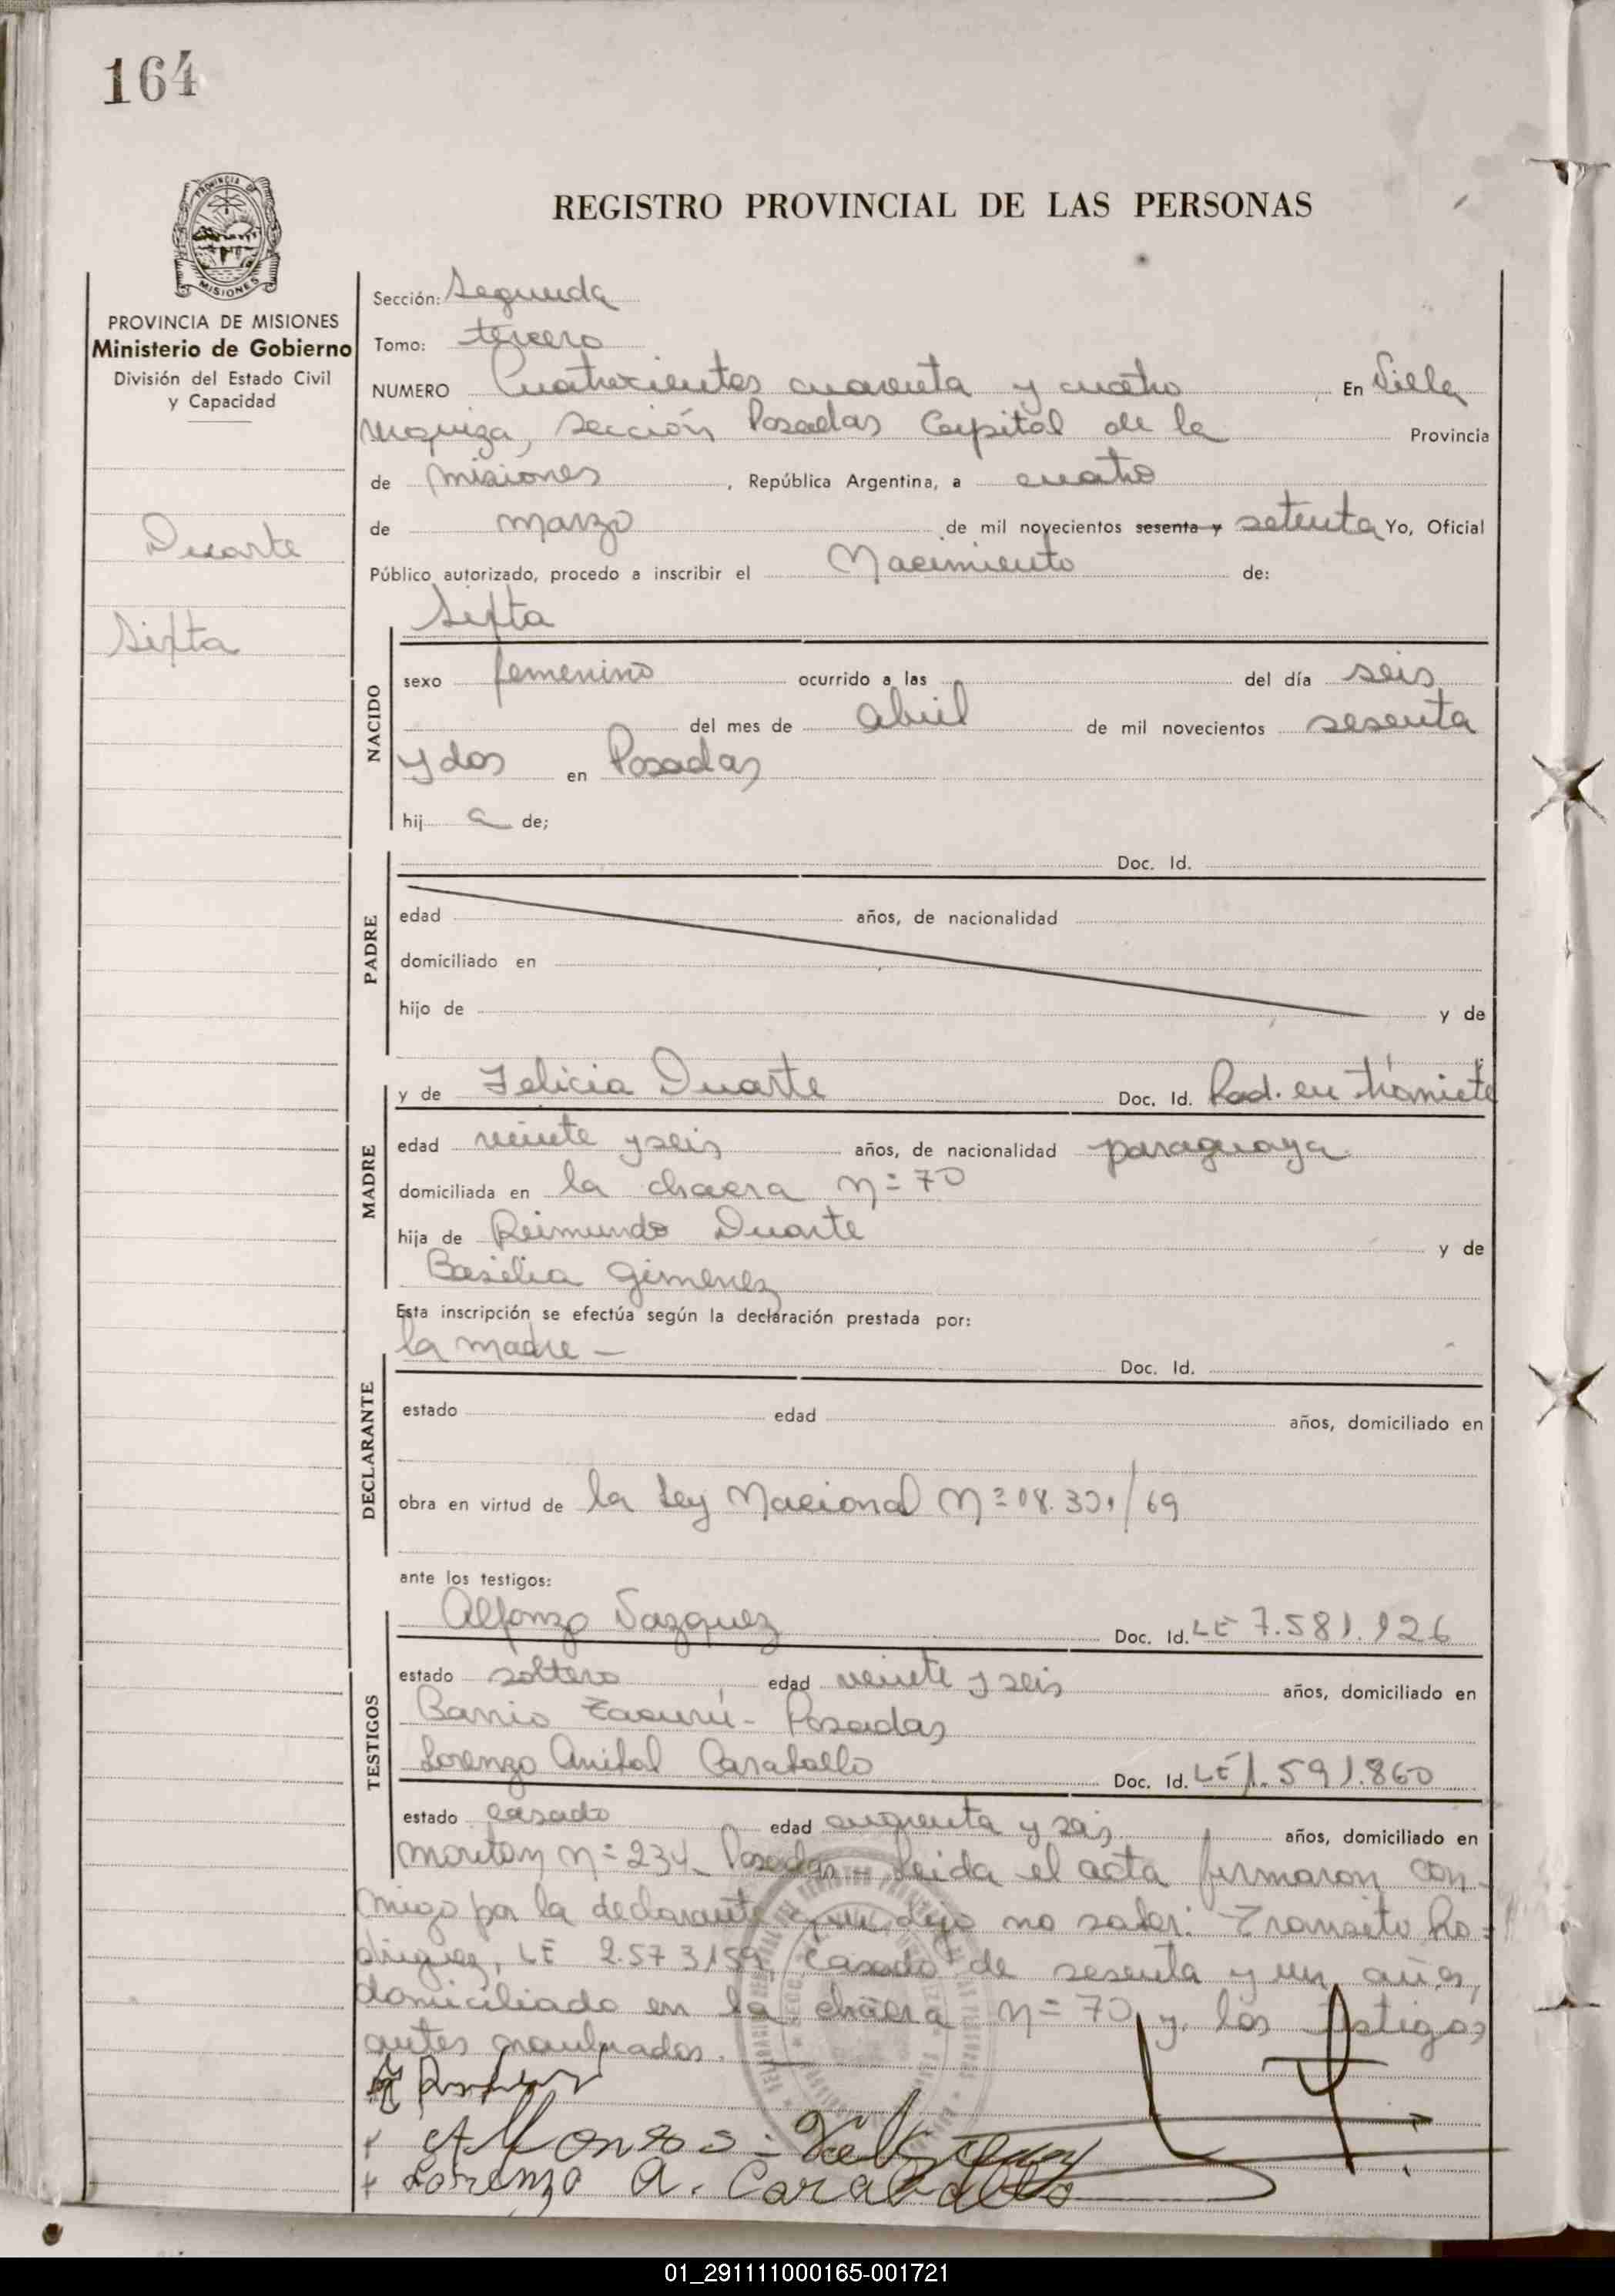 164
REGISTRO PROVINCIAL DE LAS PERSONAS
PROVINCIA DE MISIONES
Ministerio de Gobierno
División del Estado Civil
y Capacidad
Duarte
Sixta
Sección: Segunda
Tomo: tercero
NUMERO Cuatrocientos cuarenta y cuatro, En Villa
Urquiza, Sección Posadas Capital de la Provincia
de Misiones, República Argentina, a cuatro
de marzo de mil novecientos sesenta y setenta Yo, Oficial
Público autorizado, procedo a inscribir el Nacimiento de:
Sixta
NACIDO
sexo femenino ocurrido a las del día seis
del mes de abril de mil novecientos sesenta
y dos en Posadas
hij a de;
PADRE
Doc. Id.
edad años, de nacionalidad
domiciliado en
hijo de y de
MADRE
y de Felicia Duarte Doc. Id. Rad. en trámite
edad veinte y seis años, de nacionalidad paraguaya
domiciliada en la chacra Nº 70
hija de Reimundo Duarte y de
Basilia Gimenez
Esta inscripción se efectúa según la declaración prestada por:
la madre —
DECLARANTE
Doc. Id.
estado edad años, domiciliado en
obra en virtud de la Ley Nacional Nº 18.321/69
ante los testigos:
TESTIGOS
Alfonzo Vazquez Doc. Id. LE 7.581.126
estado soltero, edad veinte y seis años, domiciliado en
Barrio - Posadas
Lorenzo Anibal Caraballo Doc. Id. LE 1.591.860
estado casado edad y seis años, domiciliado en
Nº 234 Posadas - Leida el acta firmaron con-
migo por la declarante que dijo no saber: Transito Ro-
driguez, LE 2.573.159, casado de sesenta y un años,
domiciliado en la chacra Nº 70 y los testigos
antes nombrados.
Alfonso Vazquez
Lorenzo A. Caraballo
01_291111000165-001721